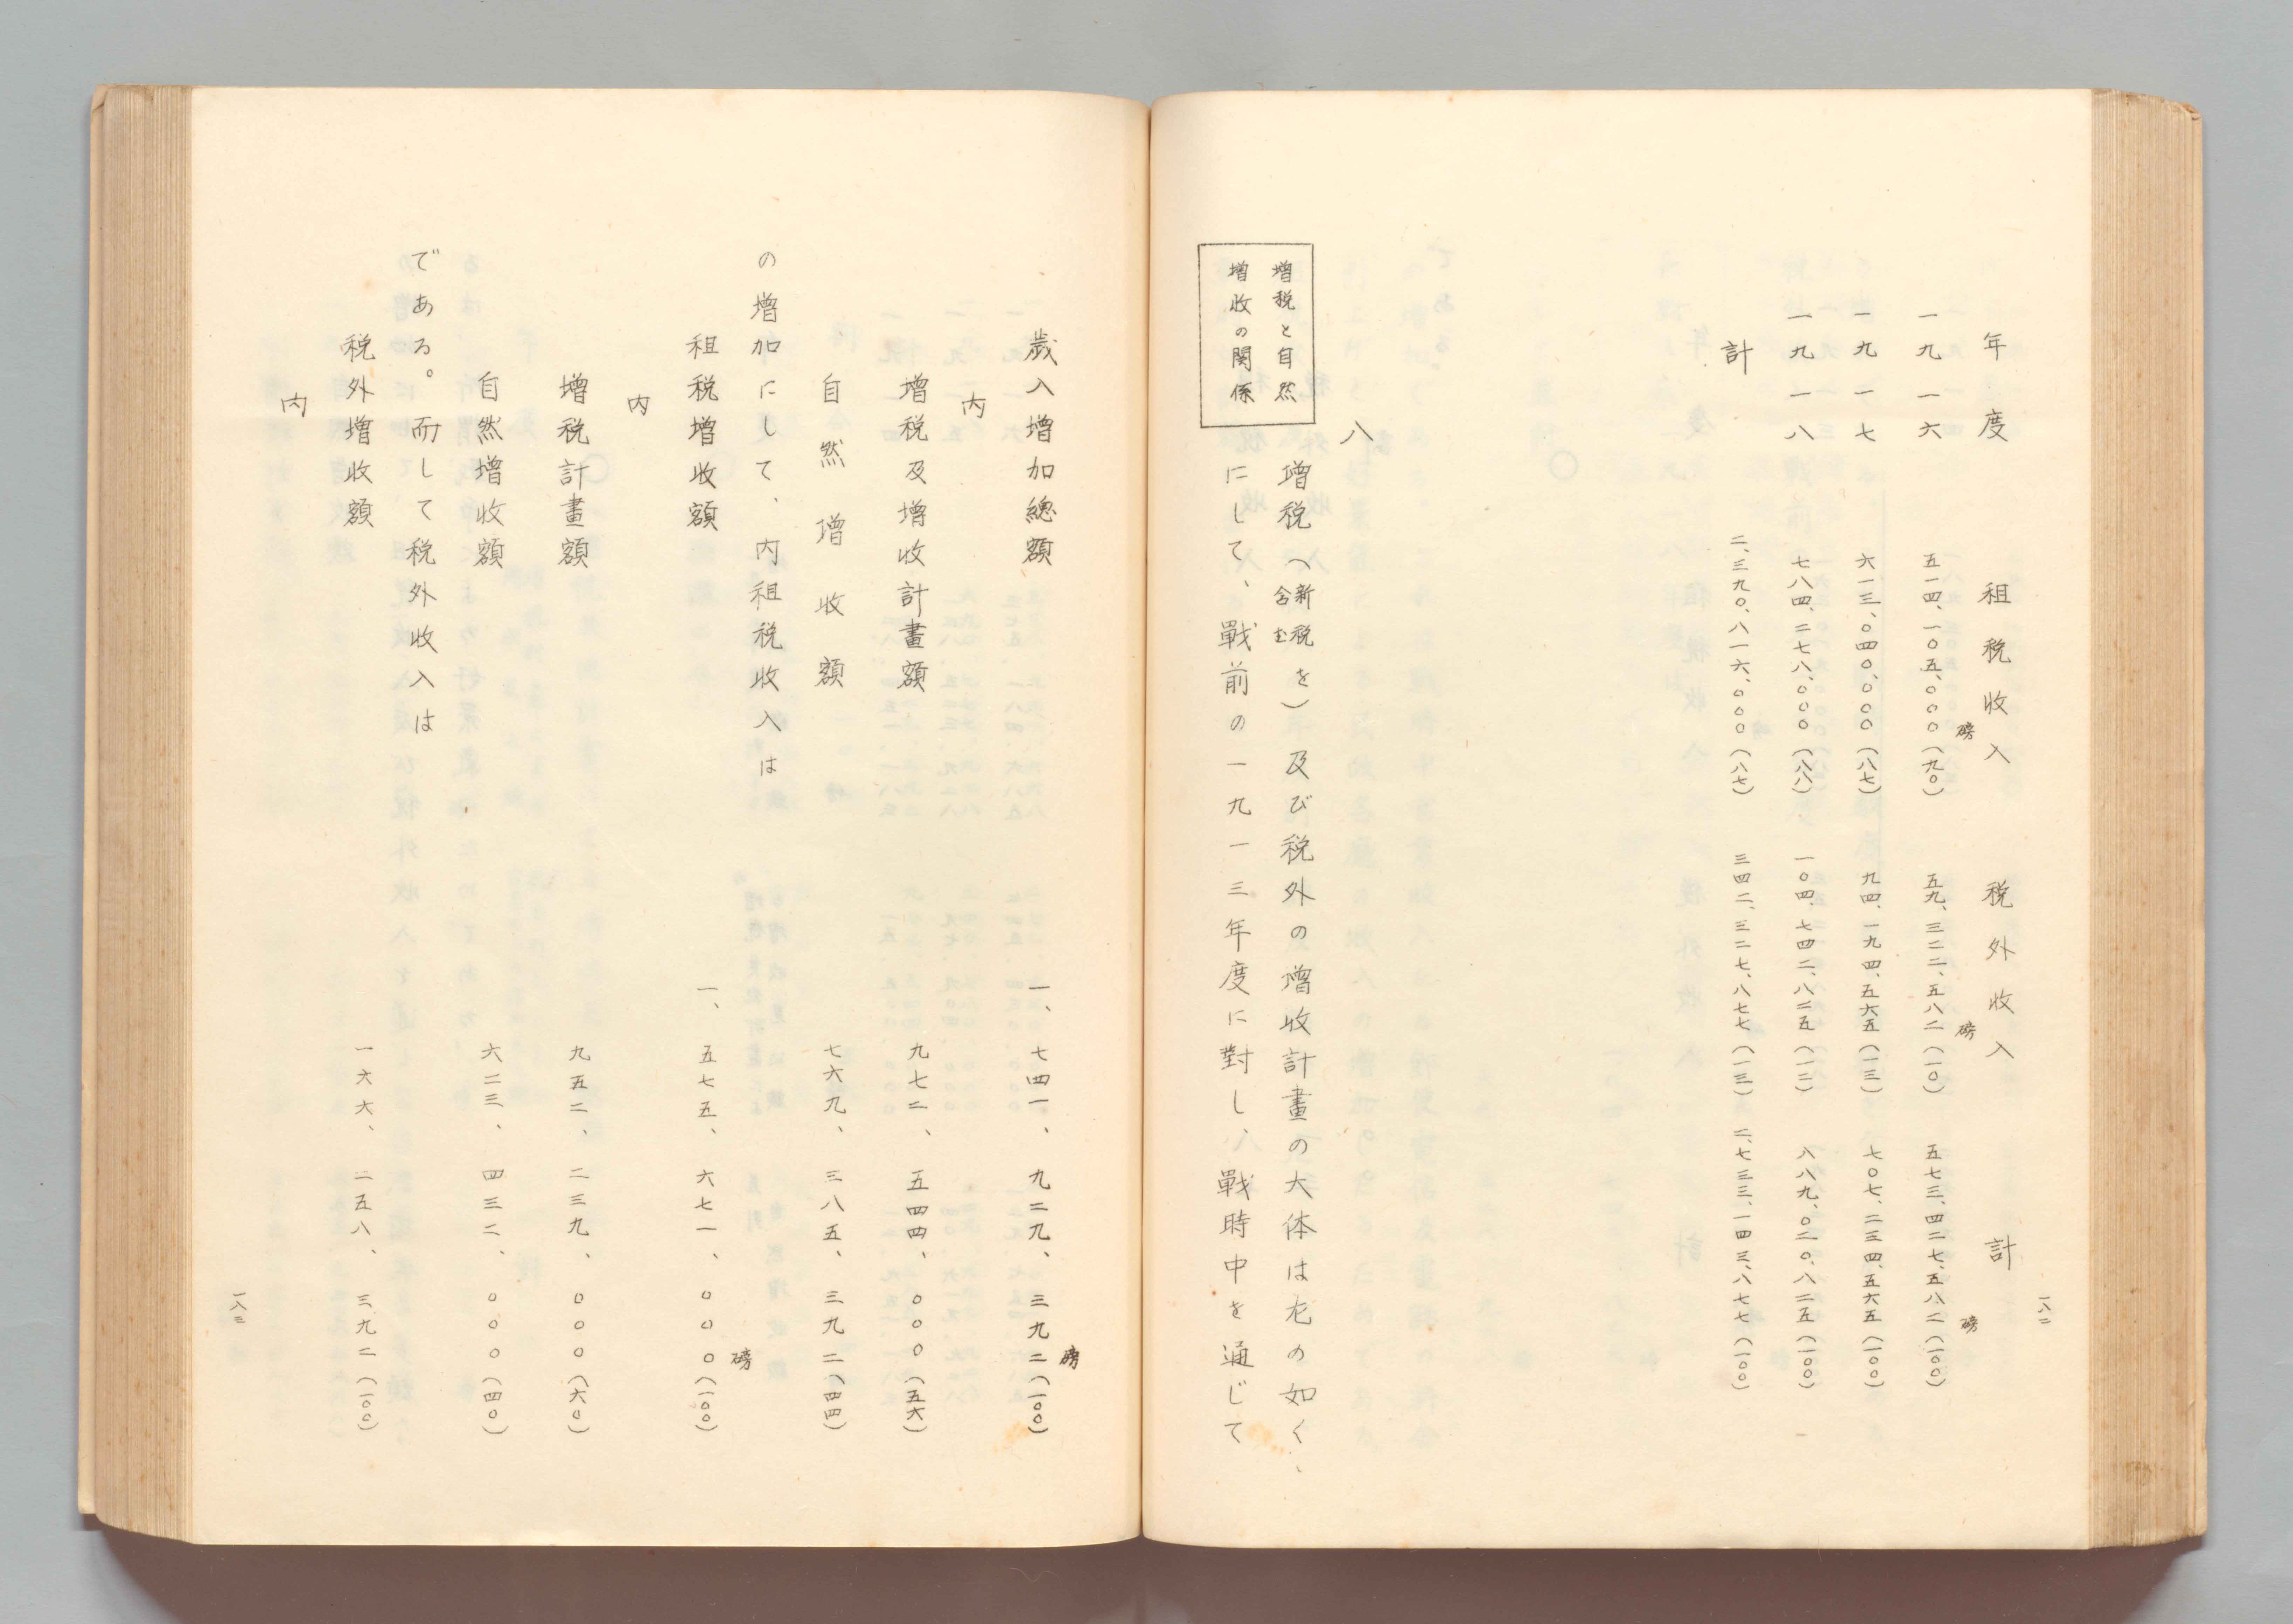 一八二
年度　租税收入　税外收入　計
磅　磅　磅
一九一六　五一四、一〇五、〇〇〇（九〇）　五九、三二二、五八二（一〇）　五七三、四二七、五八二（一〇〇）
一九一七　六一三、〇四〇、〇〇〇（八七）　九四、一九四、五六五（一三）　七〇七、二三四、五六五（一〇〇）
一九一八　七八四、二七八、〇〇〇（八八）　一〇四、七四二、八二五（一二）　八八九、〇二〇、八二五（一〇〇）
計　二、三九〇、八一六、〇〇〇（八七）　三四二、三二七、八七七（一三）　二、七三三、一四三、八七七（一〇〇）
八
増税と自然
増收の関係
増税（新税を含む）及び税外の増收計畫の大体は左の如く、
にして、戰前の一九一三年度に對し、戰時中を通じて
歳入増加總額　一、七四一、九二九、三九二（一〇〇）
磅
内
増税及増收計畫額　九七二、五四四、〇〇〇（五六）
自然増收額　七六九、三八五、三九二（四四）
の増加にして、内租税收入は
磅
租税増收額　一、五七五、六七一、〇〇〇（一〇〇）
内
増税計畫額　九五二、二三九、〇〇〇（六〇）
自然増收額　六二三、四三二、〇〇〇（四〇）
である。而して税外收入は
税外増收額　一六六、二五八、三九二（一〇〇）
内
一八三